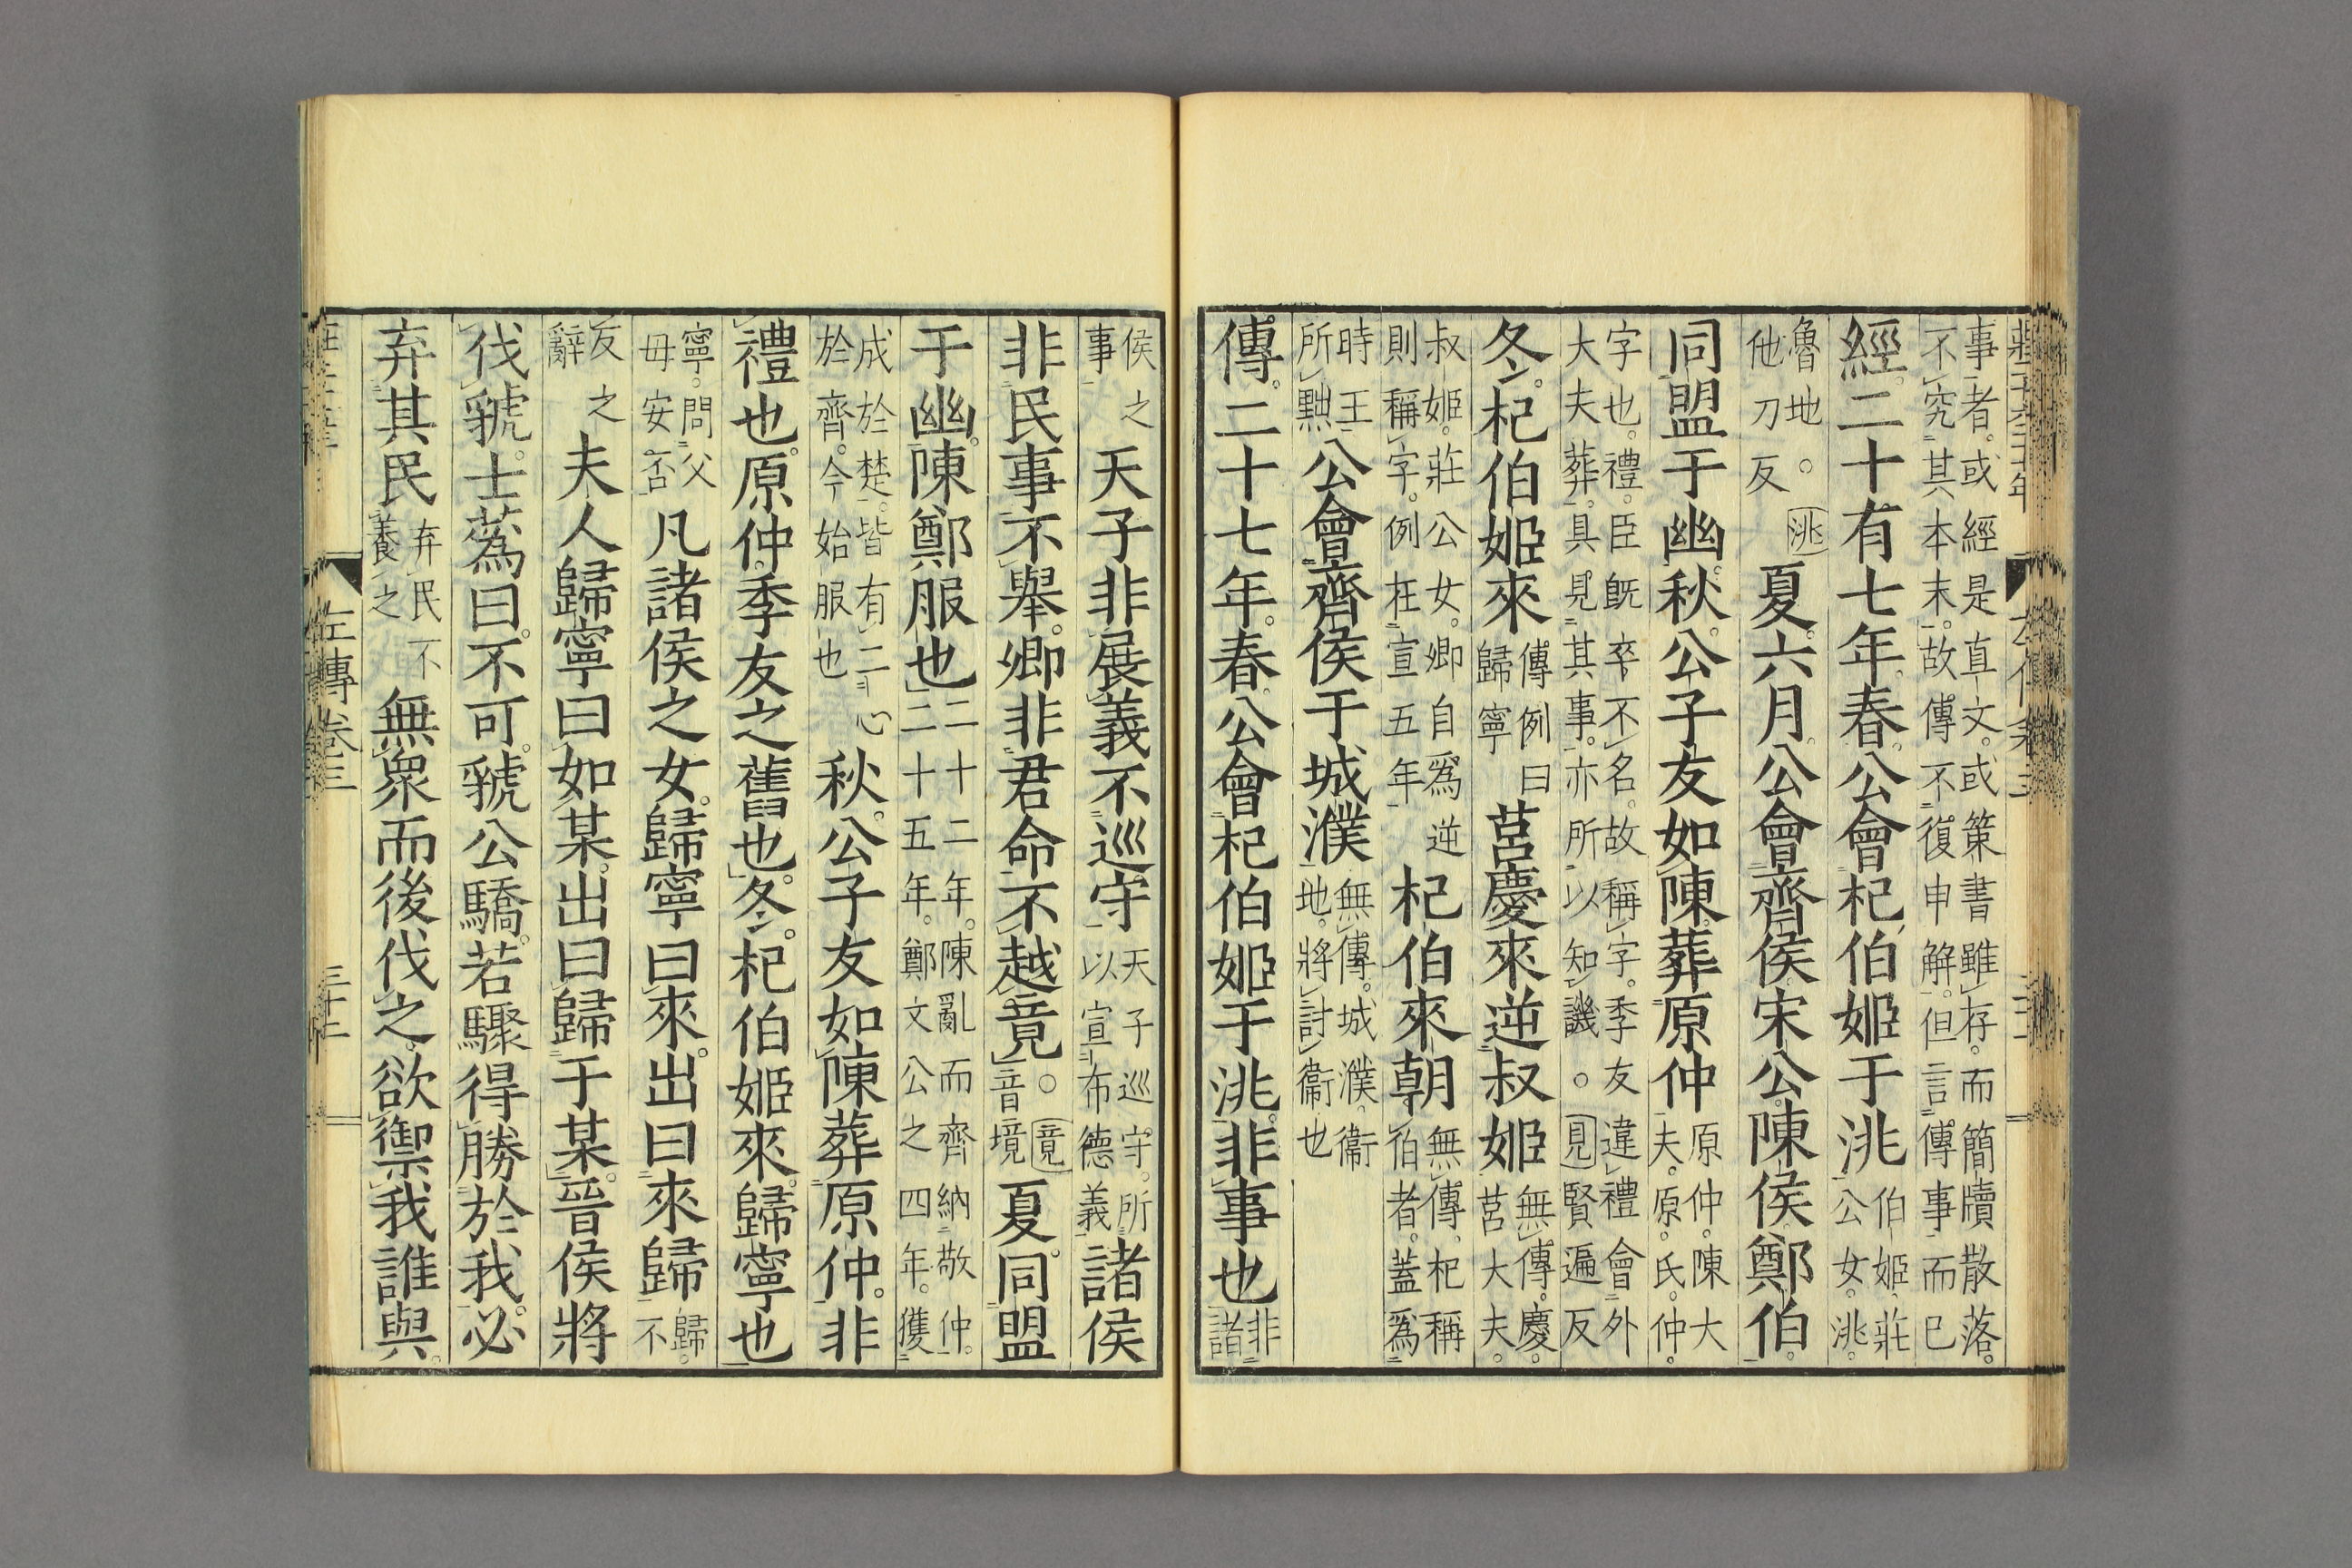 事者。或經是直文。或策書雖存。而簡牘散落。
不究其本末。故傳不復申解。但言傳事而已
經。二十有七年。春。公會杞伯姬于洮伯姬。莊公女。洮。
魯地。○洮他刀反夏。六月。公會齊侯宋公陳侯鄭伯。
同盟于幽。秋。公子友如陳。葬原仲原仲。陳大夫。原。氏。仲。
字也。禮。臣既卒不名。故稱字。季友違禮會外
大夫葬。具見其事。亦所以知譏。○見賢遍反
冬。杞伯姬來傳例曰歸寧莒慶來逆叔姬無傳。慶。莒大夫。
叔姬。莊公女。卿自為逆則稱字。例在宣五年杞伯來朝無傳。杞稱伯者。蓋為
時王所黜公會齊侯于城濮無傳。城濮。衛地。將討衛也
傳。二十七年。春。公會杞伯姬于洮。非事也非諸
侯之事天子非展義不巡守天子巡守。所以宣布德義諸侯
非民事不舉。卿非君命不越竟。○竟音境夏。同盟
于幽。陳鄭服也二十二年。陳亂而齊納敬仲。二十五年。鄭文公之四年。獲
成於楚。皆有二心於齊。今始服也秋。公子友如陳葬原仲。非
禮也。原仲。季友之舊也。冬。杞伯姬來。歸寧也
寧。問父母安否凡諸侯之女。歸寧曰來。出曰來歸歸。不
反之辭夫人歸寧曰如某。出曰歸于某。晉侯將
伐虢。士蒍曰。不可。虢公驕。若驟得勝於我。必
弃其民弃民不養之無衆而後伐之。欲禦我誰與。
左傳卷三
三十二